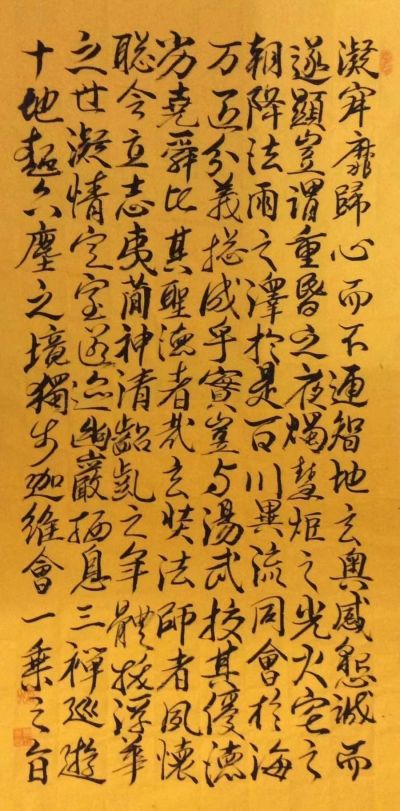 凝牢靡歸心而不通智地玄奧感懇誠而
遂顯豈謂重昬之夜燭慧炬之光火宅之
朝降法雨之澤於是百川異流同會於海
万區分義揔成乎實豈与湯武校其優德
劣堯舜比其聖德者哉玄奘法師者夙懷
聡令立志夷簡神清齠齔之年體拔浮華
之世凝情定室匿迹幽巖栖息三禪巡遊
十地超六塵之境獨步迦維會一乘之旨